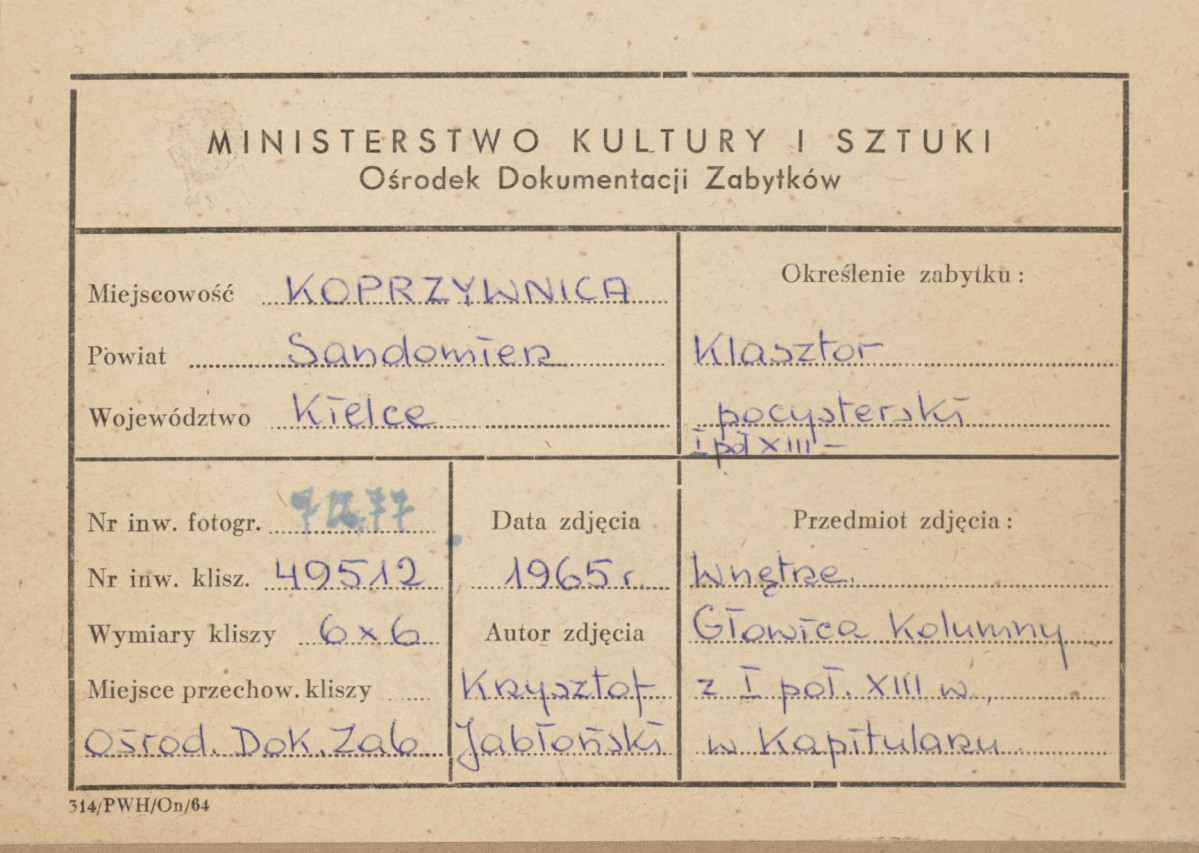 MINISTERSTWO KULTURY I SZTUKI
Ośrodek Dokumentacji Zabytków
Miejscowość KOPRZYWNICA
Powiat Sandomierz
Województwo Kielce
Określenie zabytku:
Klasztor
pocysterski
I poł XIII –
Nr inw. fotogr.
Nr inw. klisz. 49512
Wymiary kliszy 6x6
Miejsce przechow. kliszy
Ośrod. Dok. Zab
Data zdjęcia
1965 r.
Autor zdjęcia
Krzysztof
Jabłoński
Przedmiot zdjęcia:
Wnętrze.
Głowica Kolumny
z I poł. XIII w.,
w Kapitularzu
314/PWH/On/64